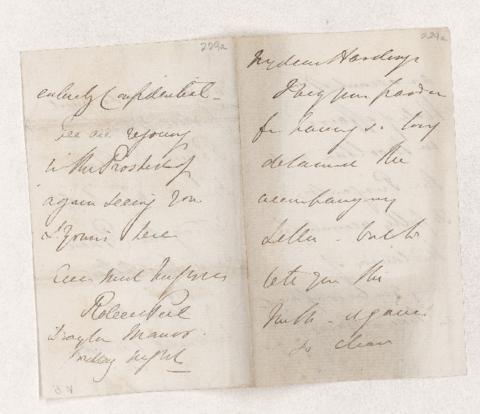 229a
My dear Hardinge
I beg your pardon
for having so long
detained the
accompanying
Letter - but to
tell you the
truth - it gave
so clear
229a
entirely Confidential -
We are rejoicing
in the Prospect of
again seeing you
& yours here
Ever most
Robert Peel
Drayton Manor.
Friday night